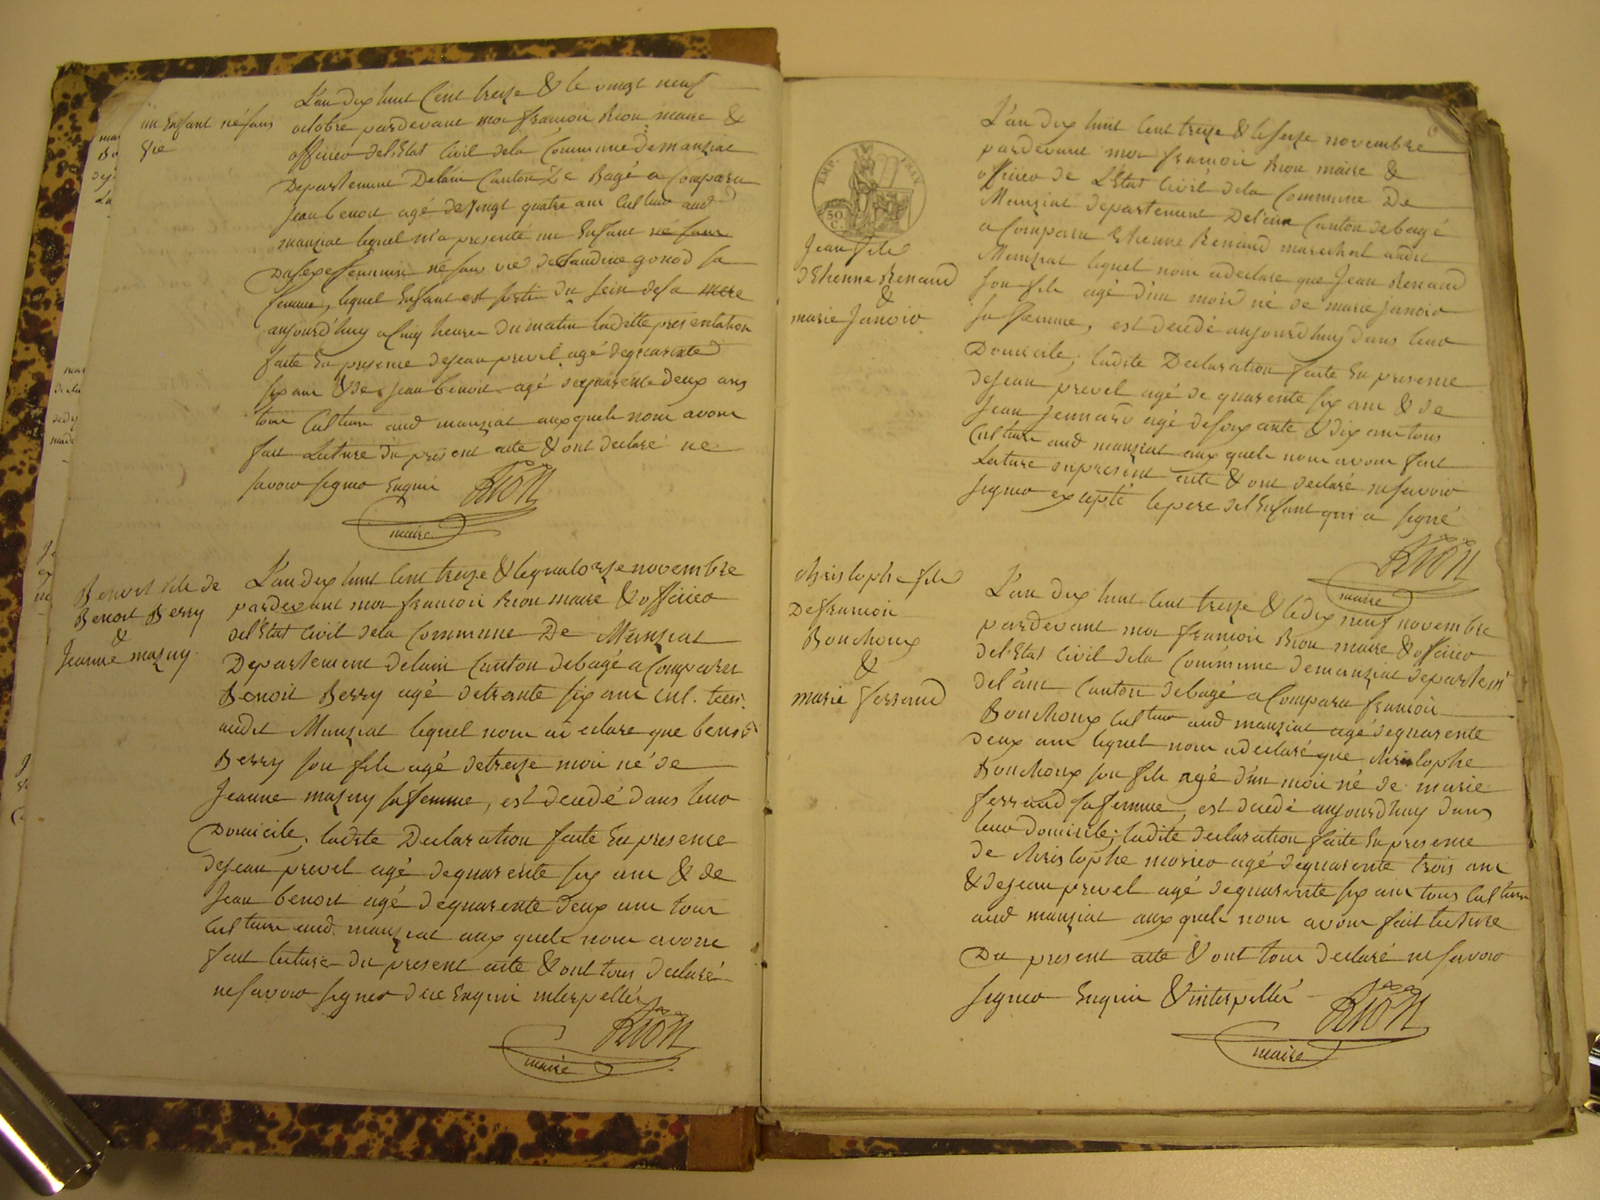 un Enfant né sans
Vie
L'an dix huit Cent treize & le vingt neuf
octobre pardevant moi francois Rion maire &
officier del'Etat Civil dela Commune de manziat
Departement Delain Canton De Bagé a Comparu
Jean benoit agé de vingt quatre ans Cultiv aud
manziat lequel m'a presenté un Enfant né sans
Du sexe feminin né sans vie de Claudine gonod sa
femme, lequel Enfant est sorti du sein desa mere
aujourd'huy a Cinq heures du matin laditte présentation
faite En presence dejean prevel agé dequarante
six ans & de Jean benoit agé dequarente deux ans
tous Cultiv aud manziat auxquels nous avons
fait Lecture du présent acte & ont declaré ne
savoir signer Enquis
RION
maire
Benoit fils de
Benoit Berry
&
Jeanne mazuy
L'an dix huit Cent treize & lequatorze novembre
pardevant moi francois Rion maire & officier
del'Etat Civil dela Commune De Manziat
Departement delain Canton debagé a Comparu
Benoit Berry agé detrente six ans Cul. teur.
audit Manziat lequel nous a declare que benoit
Berry son fils agé detreize mois né de
Jeanne mazuy sa femme, est decedé dans leur
Domicile, ladite Declaration faite En presence
dejean prevel agé dequarente six ans & de
Jean benoit agé dequarente deux ans tous
Cultiv aud. manziat auxquels nous avons
fait lecture du present acte & ont tous declaré
ne savoir signer dece Enquis interpellés
RION
maire
EMP. FRAN.
50
C.
Jean fils
d'Etienne Renaud
&
marie Janoir
L'an dix huit Cent treize & leseize novembre
pardevant moi francois Rion maire &
officier de L'Etat Civil dela Commune De
Manziat departement Delain Canton debagé
a Comparu Etienne Renaud marechal audit
Manziat lequel nous adeclare que Jean Renaud
son fils agé d'un mois né de marie Janoir
sa femme, est decedé aujourdhuy dans leur
Domicile; ladite Declaration faite En presence
dejean prevel agé de quarente six ans & de
Jean agé desoixante & dix ans tous
Cultiv aud manziat auxquels nous avons fait
Lecture dupresent acte & ont declaré nesavoir
signer excepté lepere del'Enfant qui a signé
RION
maire
christophe fils
De francois
Bouchoux
&
marie ferrand
L'an dix huit Cent treize & ledix neuf novembre
pardevant moi francois Rion maire & officier
del'Etat Civil dela Commune demanziat departemt
del'ain Canton debagé a Comparu francois
Bouchoux Cultiv aud manziat agé dequarente
deux ans lequel nous adeclaré que christophe
Bouchoux son fils agé d'un mois né de marie
ferrand sa femme, est decedé aujourdhuy dans
leur domicile; ladite declaration faite En presence
de christophe agé dequarente trois ans
& dejean prevel agé dequarente six ans tous Cultiv
aud manziat auxquels nous avons fait lecture
Du present acte & ont tous declaré ne savoir
signer Enquis & interpellés
RION
maire